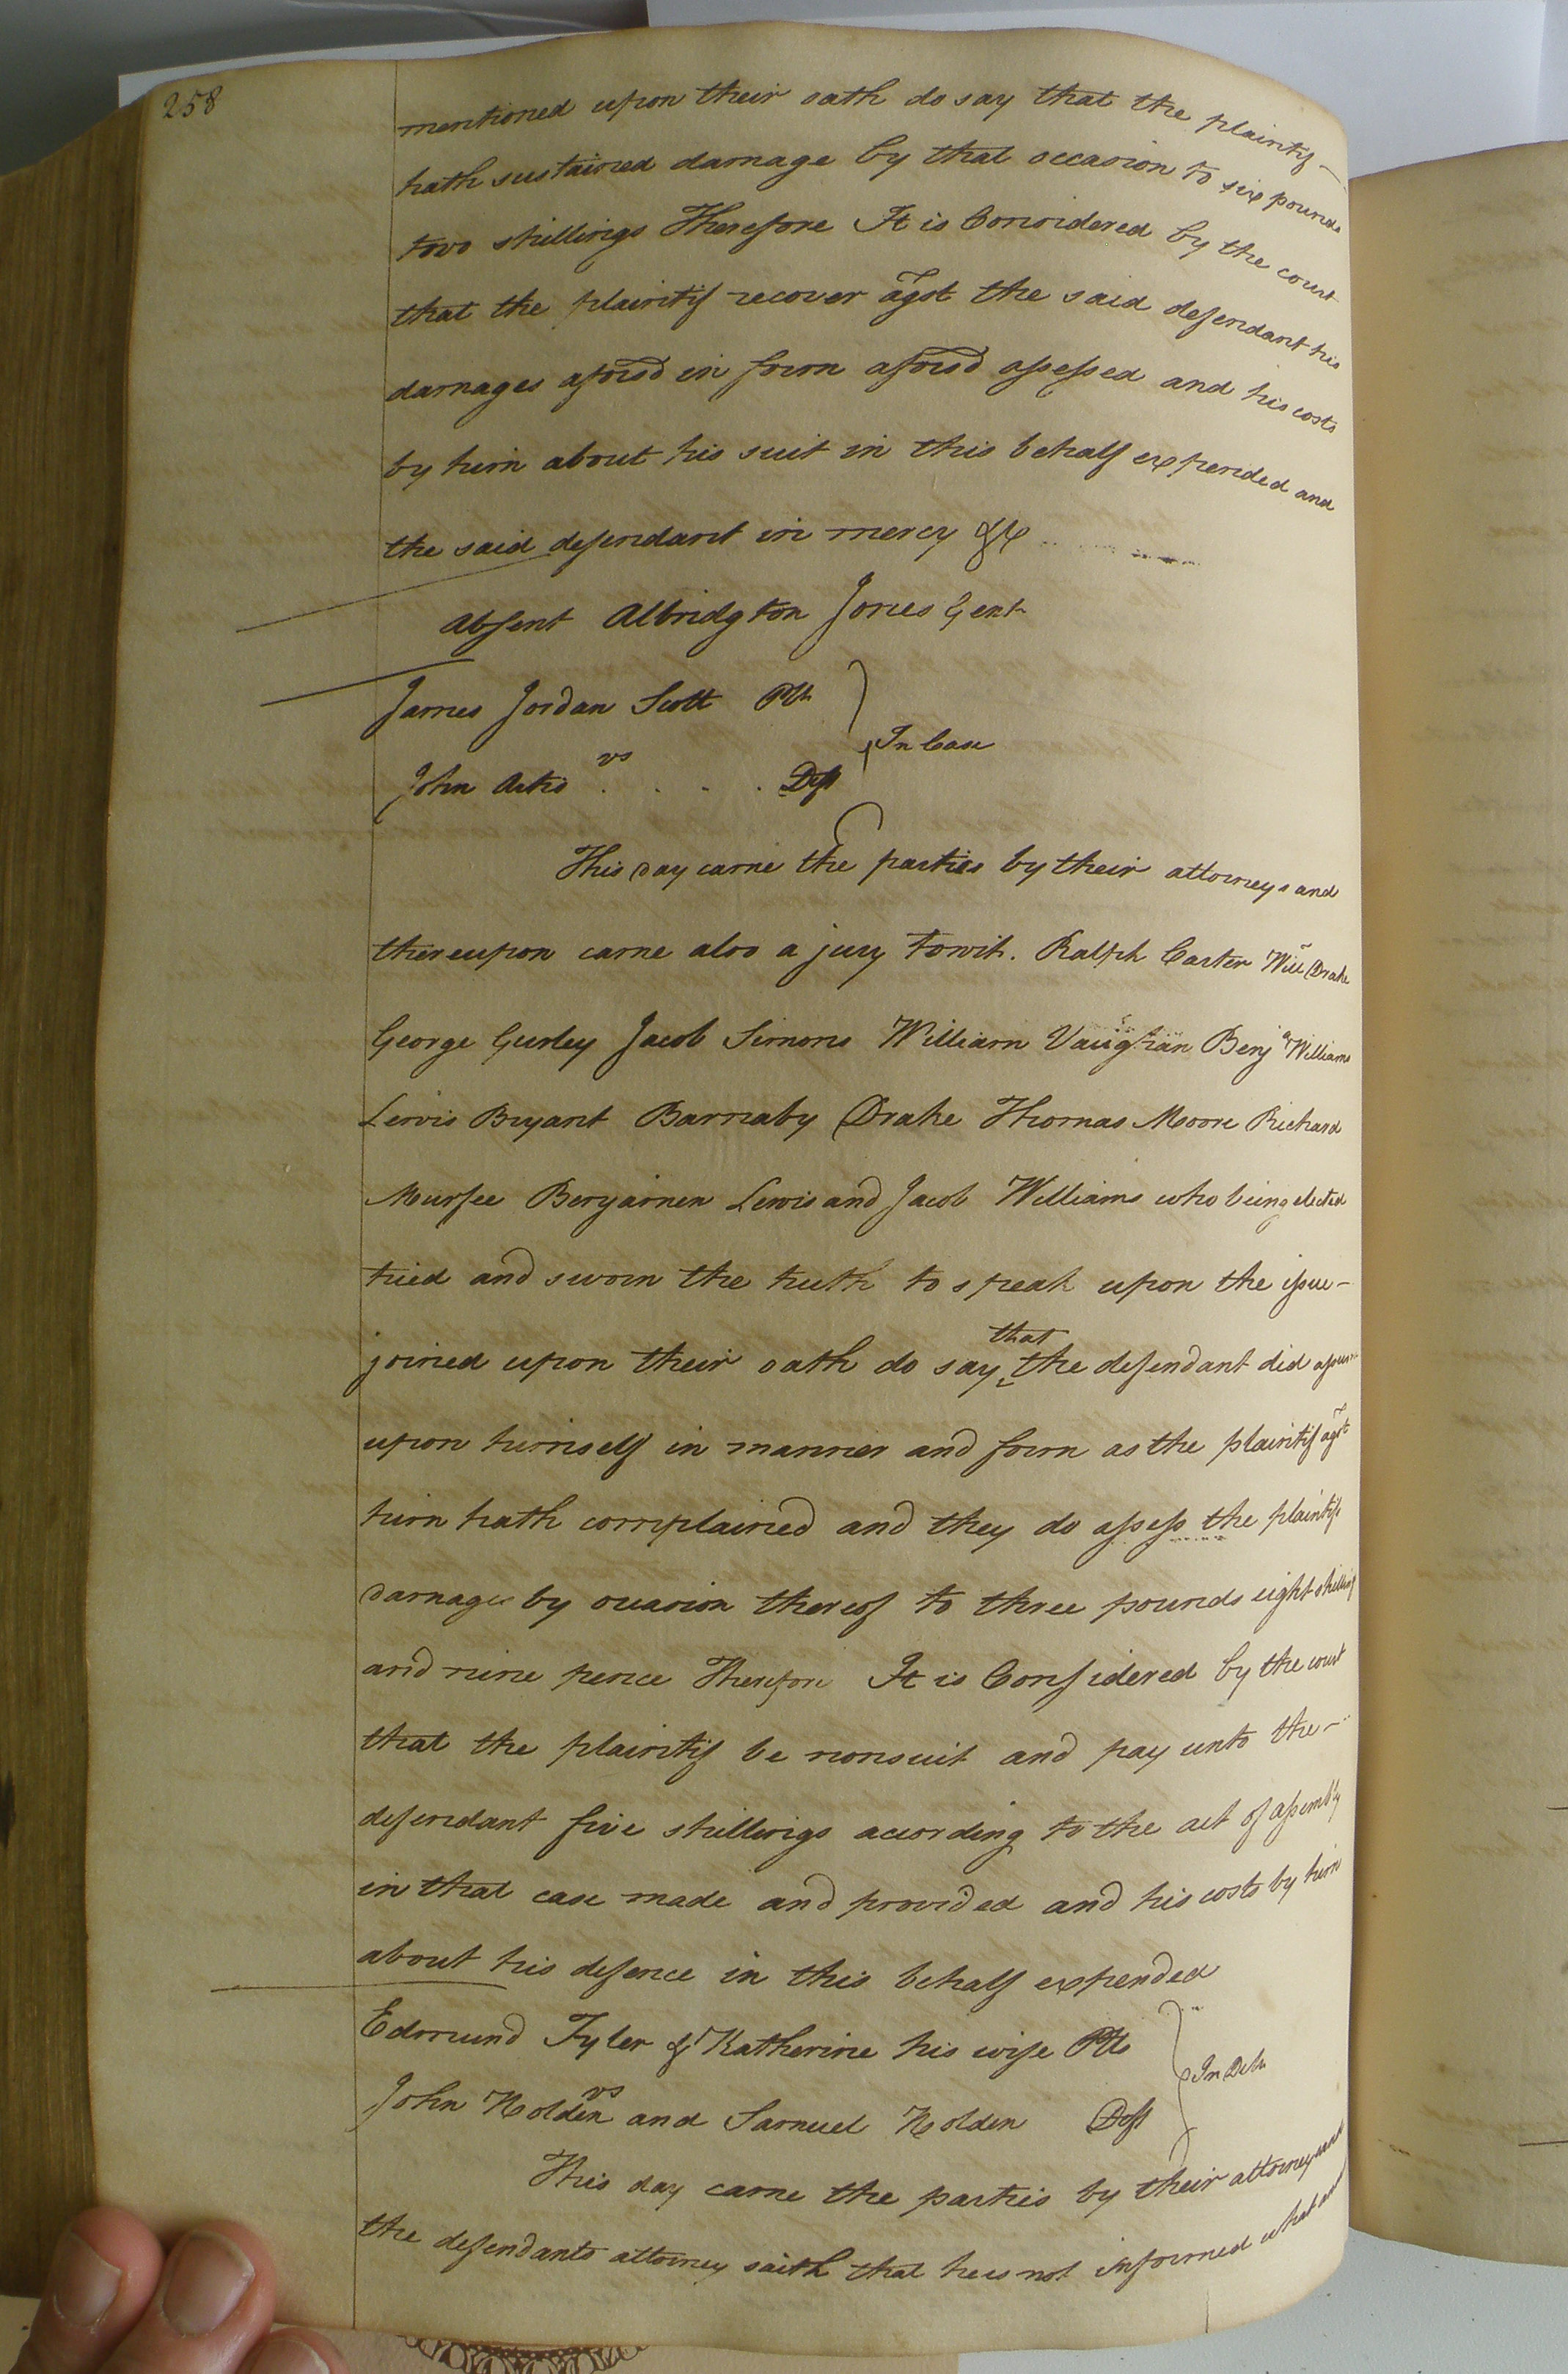 258
mentioned upon their oath do say that the plaintif
hath sustained damage by that occasion to six pounds
two shillings Therefore It is Considered by the court
that the plaintif recover agst the said defendant his
damages aforsd in form aforsd assessed and his costs
by him about his suit in this behalf expended and
the said defendant in mercy &c
Absent Albridgton Jones Gent
James Jordan Scott Plt
In Case
vs
John Artis . . . . Deft
This day came the parties by their attorneys and
thereupon came also a jury towit. Ralph Carter Will Drake
George Gurley Jacob Simons William Vaughan Benja Williams
Lewis Bryant Barnaby Drake Thomas Moore Richard
Murfee Benjamen Lewis and Jacob Williams who being elected
tried and sworn the truth to speak upon the issue
joined upon their oath do say that the defendant did assume
upon himself in manner and form as the plaintif agst
him hath complained and they do assess the plaintifs
damages by occasion thereof to three pounds eight shillings
and nine pence Therefore It is Considered by the court
that the plaintif be nonsuit and pay unto the
defendant five shillings according to the act of assembly
in that case made and provided and his costs by him
about his defence in this behalf expended
Edmund Tyler & Katherine his wife Plts
In Debt
vs
John Holden and Samuel Holden Deft
This day came the parties by their attorneys and
the defendants attorney saith that he is not informed what